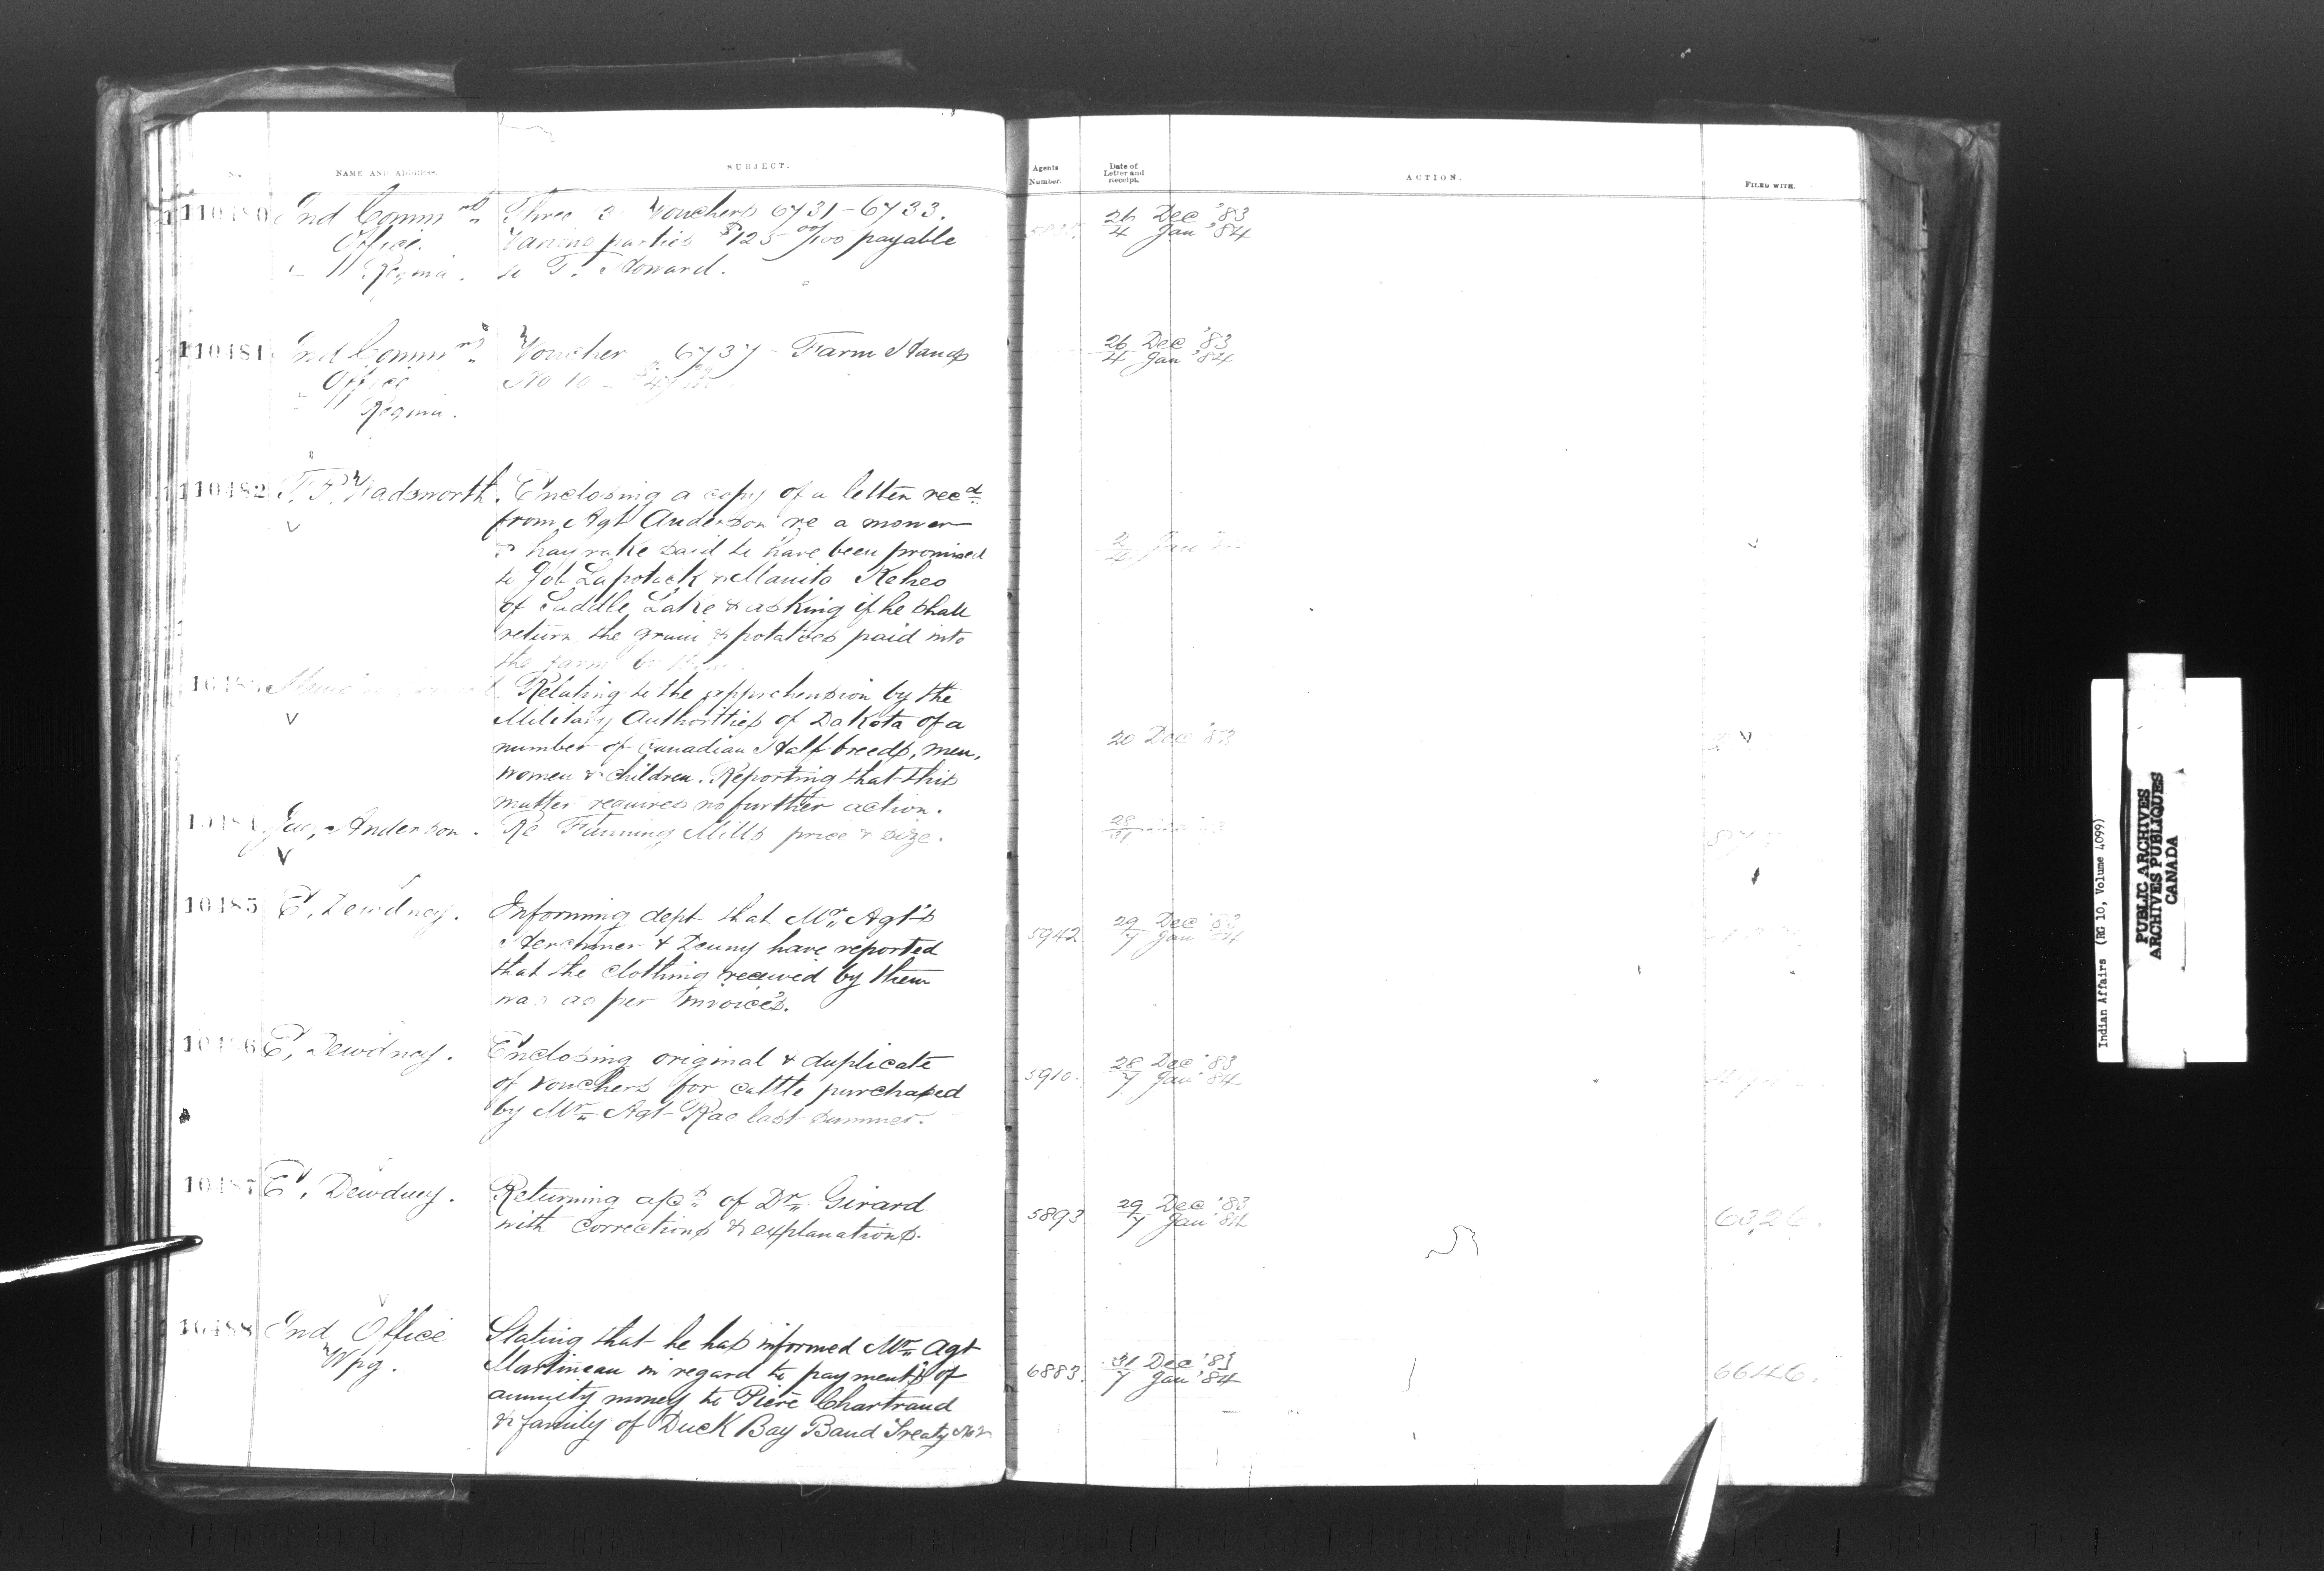 NAME AND ADDRESS.
SUBJECT.
Agents Number.
Date of Letter and Receipt.
ACTION.
FILED WITH.
10480 Ind Commrs Office Regina.
Three 3 Vouchers 6731-6733.
Various parties $125 00/100 payable
to T. Howard.
26 Dec '83
4 Jan '84
10481 Ind Commrs Office Regina.
Voucher 6737 - Farm Hands
No 10 -
26 Dec '83
4 Jan '84
10482 T. P. Wadsworth.
Enclosing a copy of a letter recd
from Agt Anderson re a mower
& hay rake said to have been promised
to Job Lapotack & Manito Keheo
of Saddle Lake & asking if he shall
return the grain & potatoes paid into
the farm by them.
Relating to the apprehension by the
Military Authorities of Dakota of a
number of Canadian Half-breeds, men,
women & children. Reporting that this
matter requires no further action.
20 Dec '83
10484 Anderson.
Re Fanning Mills price & size.
10485 E. Dewdney.
Informing dept that Mr. Agt's
Herchmer & Denny have reported
that the clothing received by them
was as per invoices.
5942
29 Dec '83
7 Jan '84
10486 E. Dewdney.
Enclosing original & duplicate
of vouchers for cattle purchased
by Mr. Agt Rae last summer.
5910.
28 Dec '83
7 Jan '84
10487 E. Dewdney.
Returning a/cs of Dr. Girard
with corrections & explanations.
5893
29 Dec '83
7 Jan '84
6326.
10488 Ind Office Wpg.
Stating that he has informed Mr. Agt
Martineau in regard to payments of
annuity money to Piere Chartrand
& family of Duck Bay Band Treaty No 2
6883.
31 Dec '83
7 Jan '84
Indian Affairs (RG 10, Volume 4099)
PUBLIC ARCHIVES
ARCHIVES PUBLIQUES
CANADA